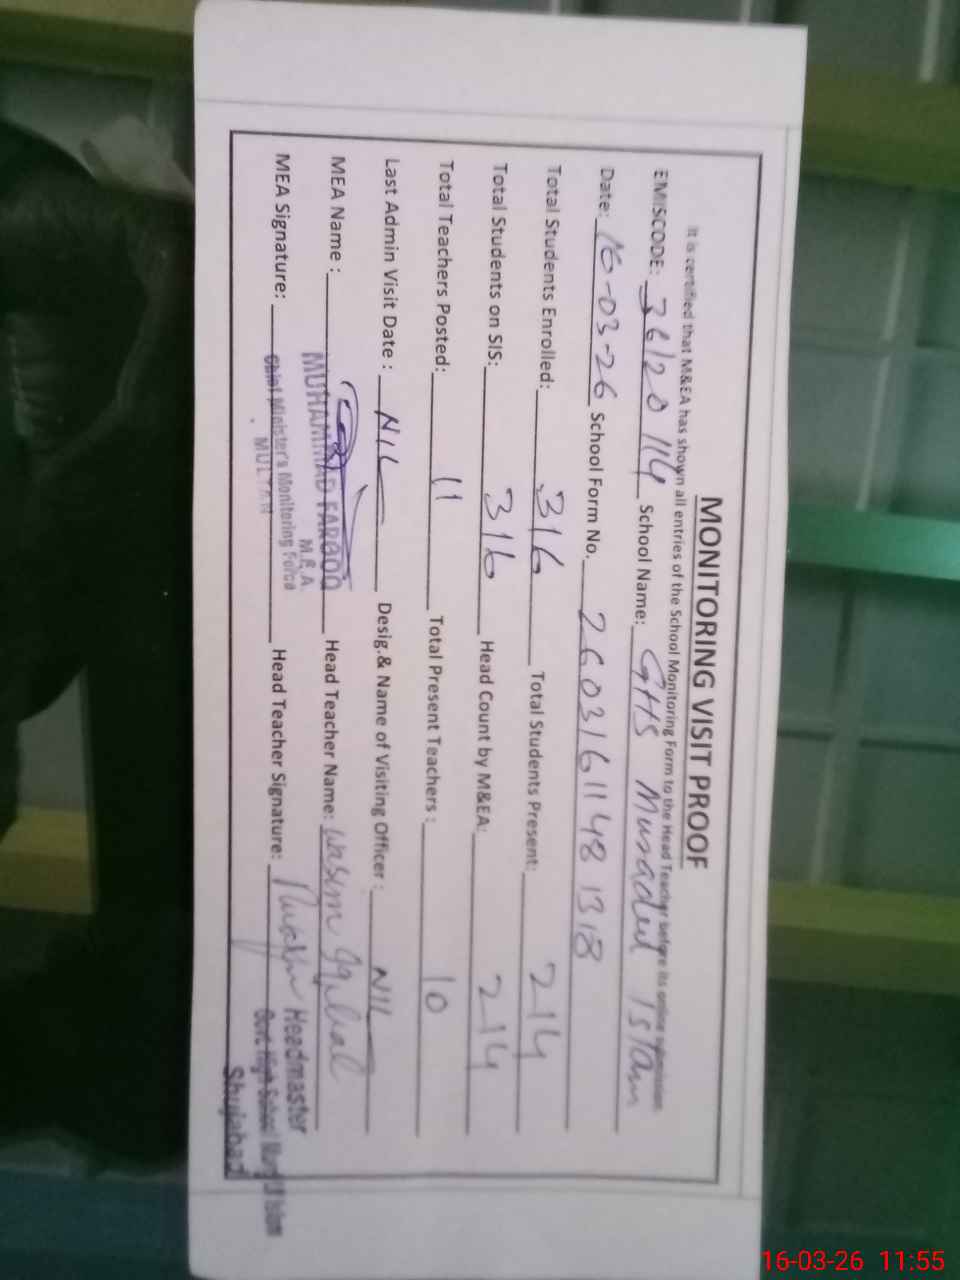 MONITORING VISIT PROOF
It is certified that M&EA has shown all entries of the School Monitoring Form to the Head Teacher before its online submission
EMISCODE: 36120114 School Name: GHS Muradul Islam
Date: 16-03-26 School Form No. 26031611481318
Total Students Enrolled: 316 Total Students Present: 214
Total Students on SIS: 316 Head Count by M&EA: 214
Total Teachers Posted: 11 Total Present Teachers : 10
Last Admin Visit Date : NIL Desig.& Name of Visiting Officer : NIL
MEA Name : MUHAMMAD FAROOQ Head Teacher Name: Wasim Iqbal
M.E.A.
MEA Signature: Chief Minister's Monitoring Force Head Teacher Signature: Headmaster
MULTAN
Govt. High School Islam
Shujabad
16-03-26 11:55